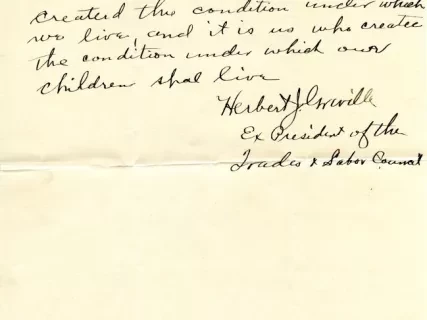 created the condition under which
we live, and it is us who create
the condition under which our
children shal live
Herbert J.
Ex President of the
Trades & Labor Council